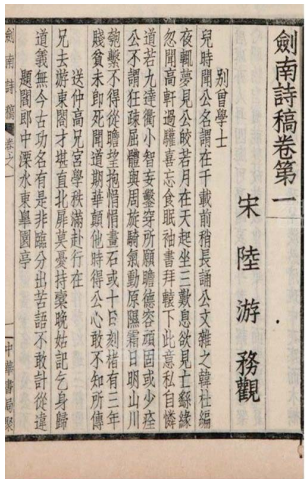 劍南詩稿卷第一
宋 陸 游 務觀
別曾學士
兒時聞公名謂在千載前稍長誦公文雜之韓杜編
夜輒夢見公皎若月在天起坐三歎息欲見亡繇緣
忽聞高軒過驩喜忘食眠袖書拜轅下此意私自憐
道若九達衢小智妄鑿穿所願瞻德容頑固或少痊
公不謂狂疎屈體與周旋騎氣動原隰霜日明山川
匏繫不得從瞻望抱悁悁畫石或十日刻楮有三年
賤貧未即死聞道期華顛他時得公心敢不知所傳
送仲高兄宮學秩滿赴行在
兄去游東閣才堪直北扉莫憂持橐晚姑記乞身歸
道義無今古功名有是非臨分出苦語不敢計從違
題閻郎中溧水東皋園亭
劍南詩稿 卷之一 中華書局聚